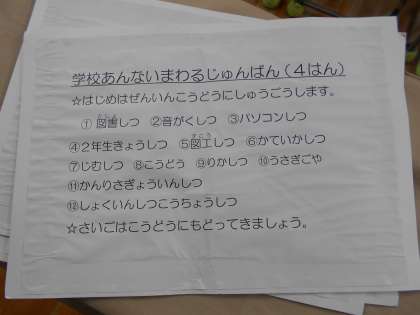 学校あんないまわるじゅんばん（４はん）
☆はじめはぜんいんこうどうにしゅうごうします。
① 図書しつ ②音がくしつ ③パソコンしつ
④２年生きょうしつ ⑤図工しつ ⑥かていかしつ
⑦じむしつ ⑧こうどう ⑨りかしつ ⑩うさぎごや
⑪かんりさぎょういんしつ
⑫しょくいんしつこうちょうしつ
☆さいごはこうどうにもどってきましょう。